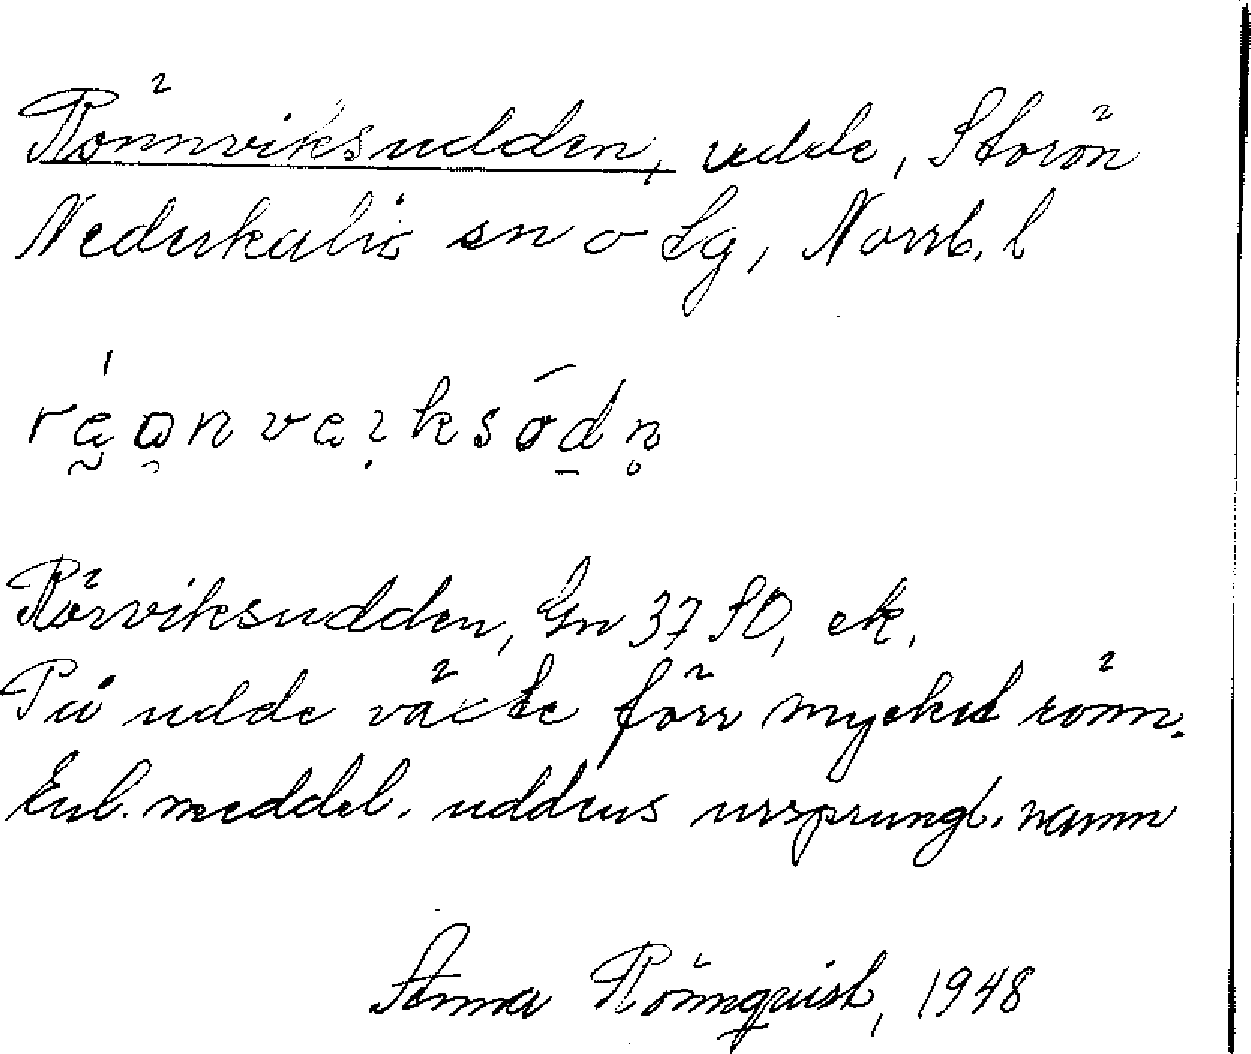 Rönnviksudden, udde, Storön
Nederkalix sn o Lg, Norrb. l
Rörviksudden, Gn 37 SO, ek.
På udde växte förr mycket rönn.
Enl. meddel. uddens ursprungl. namn
Rönnquist, 1948